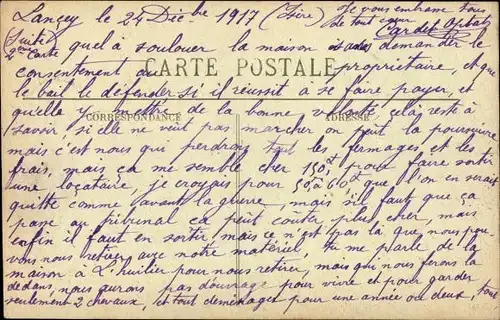 Lancey le 24 Décbre 1917 (Isère) Je vous embrasse tous
de tout cœur
(Suite
2ème Carte
quel à soulouer la maison sans demander le
consentement au propriétaire, et que
CARTE POSTALE
le bail le défender si il réussit à se faire payer, et
qu'elle y mettre de la bonne volonté, cela reste à
CORRESPONDANCE
ADRESSE
savoir si elle ne veut pas marcher on peut la poursuivre
mais c'est nous qui perdrons tout les fermages et les
frais, mais ça me semble cher 150f pour faire sortir
une locataire, je croyais pour 50 à 60f que l'on en serait
quitte comme avant la guerre, mais s'il faut que ça
passe au tribunal ça peut coûter plus cher, mais
enfin il faut en sortir mais ce n'est pas là que nous pou-
vons nous retirer avec notre matériel, tu me parle de la
maison à L'huilier pour nous retirer, mais qui nous ferons là
dedans, nous aurons pas d'ouvrage pour vivre et pour garder
seulement 2 chevaux, et tout déménager pour une année ou deux, tout